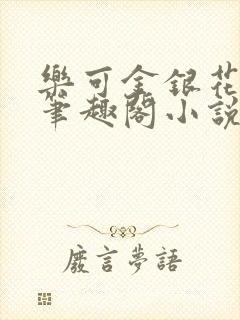 樂可金銀花
筆趣閣小說
廢言夢語